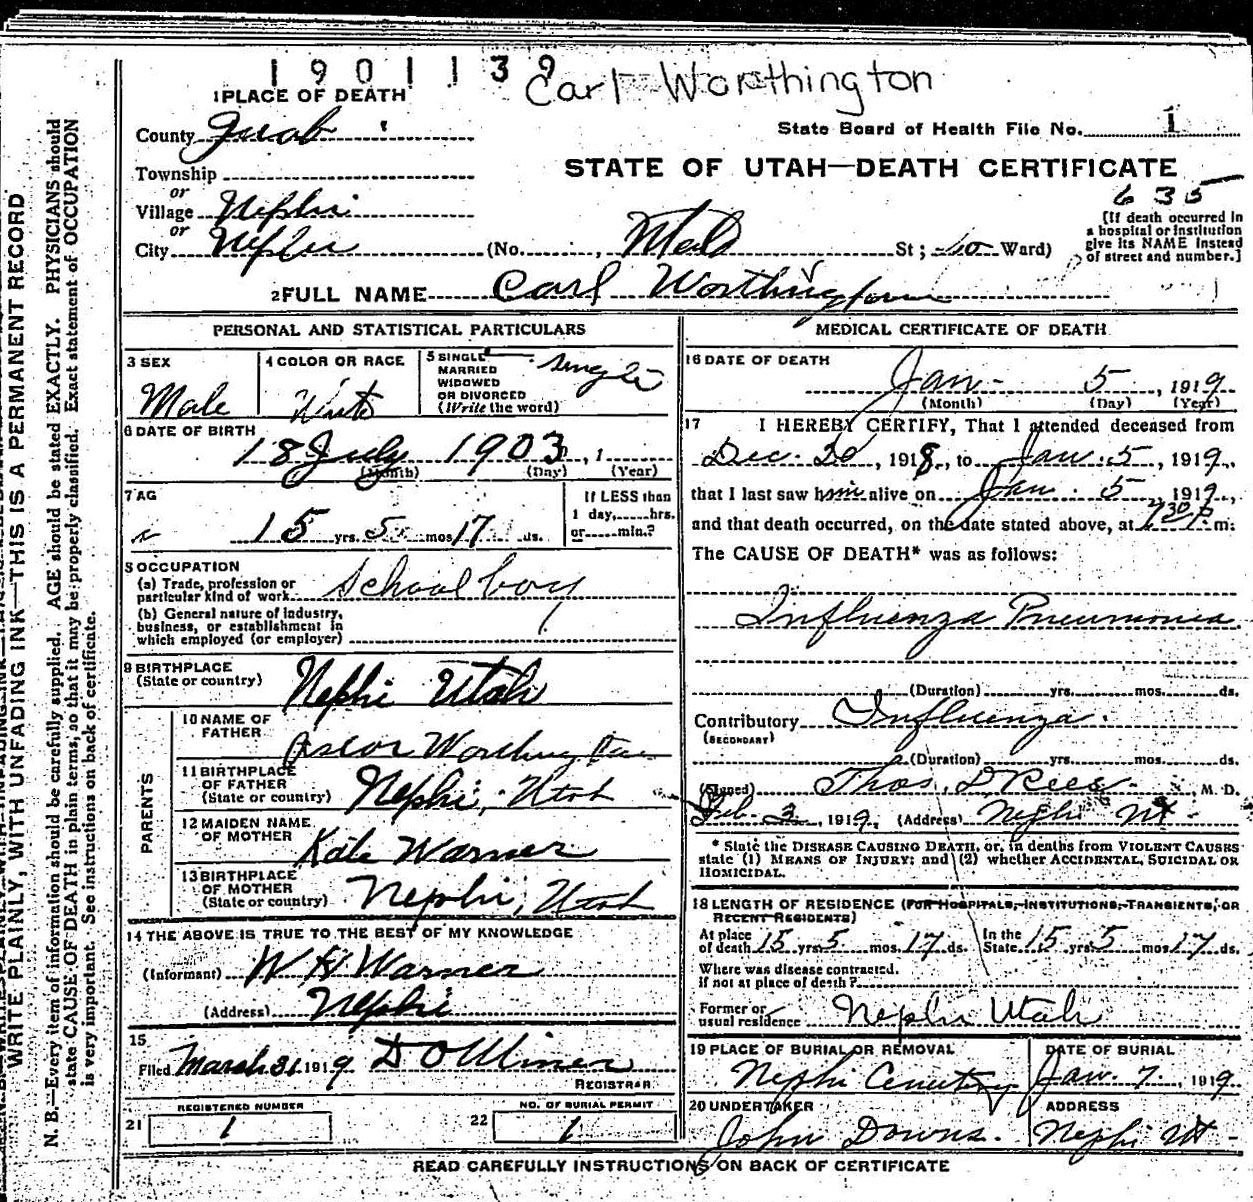 1901139
Carl Worthington
1 PLACE OF DEATH
County Juab
State Board of Health File No. 1
STATE OF UTAH—DEATH CERTIFICATE
Township
or
Village Nephi
635
or
City Nephi (No. , St; Ward)
[If death occurred in
a hospital or institution
give its NAME instead
of street and number.]
2 FULL NAME Carl Worthington
PERSONAL AND STATISTICAL PARTICULARS
3 SEX
Male
4 COLOR OR RACE
White
5 SINGLE
MARRIED
WIDOWED
OR DIVORCED
(Write the word)
single
6 DATE OF BIRTH
18 July 1903, 1
(Month) (Day) (Year)
7 AG
15 yrs. 5 mos 17 ds.
If LESS than
1 day,......hrs.
or......min.?
8 OCCUPATION
(a) Trade, profession or
particular kind of work School boy
(b) General nature of industry,
business, or establishment in
which employed (or employer)
9 BIRTHPLACE
(State or country) Nephi Utah
PARENTS
10 NAME OF
FATHER Oscar Worthington
11 BIRTHPLACE
OF FATHER
(State or country) Nephi, Utah
12 MAIDEN NAME
OF MOTHER Kate Warner
13 BIRTHPLACE
OF MOTHER
(State or country) Nephi, Utah
14 THE ABOVE IS TRUE TO THE BEST OF MY KNOWLEDGE
(Informant) W H Warner
(Address) Nephi
15
Filed March 31 1919 D O Miner
REGISTRAR
21 REGISTERED NUMBER
1
22 NO. OF BURIAL PERMIT
1
MEDICAL CERTIFICATE OF DEATH
16 DATE OF DEATH
Jan 5, 1919
(Month) (Day) (Year)
17 I HEREBY CERTIFY, That I attended deceased from
Dec. 20, 1918, to Jan. 5, 1919,
that I last saw him alive on Jan. 5, 1919,
and that death occurred, on the date stated above, at 930 P m:
The CAUSE OF DEATH* was as follows:
Influenza Pneumonia
(Duration) yrs. mos. ds.
Contributory Influenza.
(SECONDARY)
(Duration) yrs. mos. ds.
(Signed) Thos. D. Rees M. D.
Feb. 2, 1919, (Address) Nephi Ut
* State the DISEASE CAUSING DEATH, or, in deaths from VIOLENT CAUSES
state (1) MEANS OF INJURY; and (2) whether ACCIDENTAL, SUICIDAL OR
HOMICIDAL.
18 LENGTH OF RESIDENCE (FOR HOSPITALS, INSTITUTIONS, TRANSIENTS, OR
RECENT RESIDENTS)
At place
of death 15 yrs 5 mos. 17 ds. In the
State 15 yrs 5 mos 17 ds.
Where was disease contracted.
If not at place of death?
Former or
usual residence Nephi Utah
19 PLACE OF BURIAL OR REMOVAL
Nephi Cemetery
DATE OF BURIAL
Jan. 7, 1919
20 UNDERTAKER
John Downs.
ADDRESS
Nephi Ut
READ CAREFULLY INSTRUCTIONS ON BACK OF CERTIFICATE
WRITE PLAINLY, WITH UNFADING INK—THIS IS A PERMANENT RECORD
N. B.—Every item of information should be carefully supplied. AGE should be stated EXACTLY. PHYSICIANS should
state CAUSE OF DEATH in plain terms, so that it may be properly classified. Exact statement of OCCUPATION
is very important. See instructions on back of certificate.